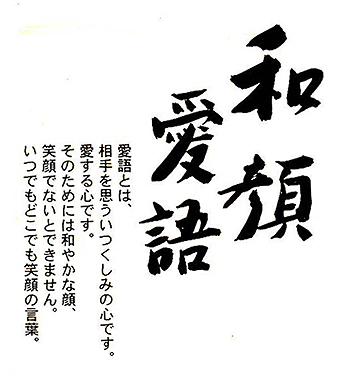 和顔
愛語
愛語とは、
相手を思ういつくしみの心です。
愛する心です。
そのためには和やかな顔、
笑顔でないとできません。
いつでもどこでも笑顔の言葉。